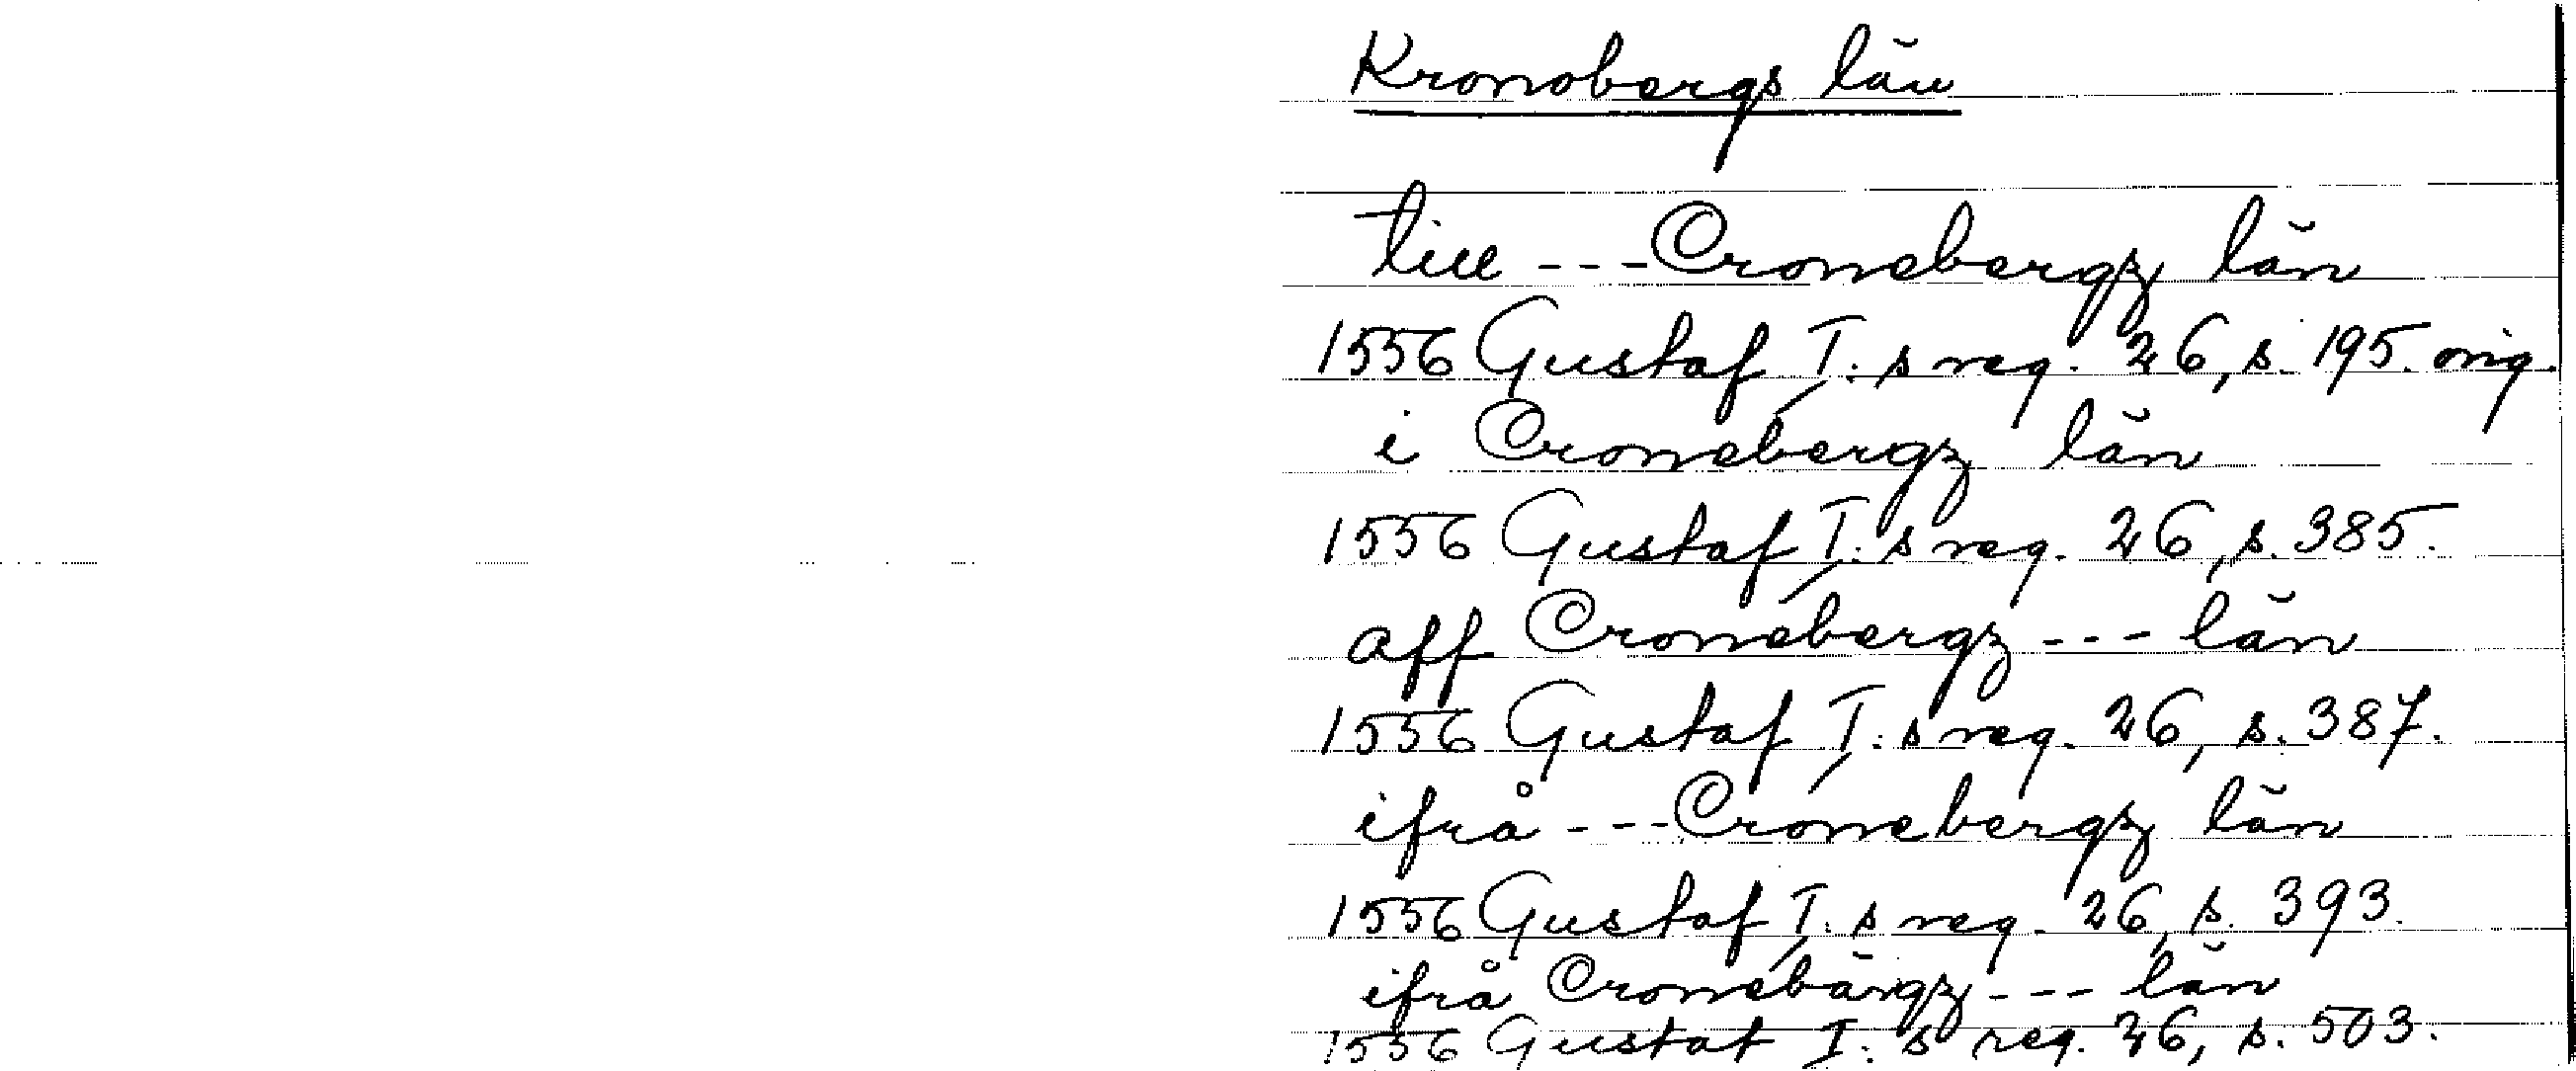 Kronobergs län
till --- Cronebergz län
1556 Gustaf I:s reg. 26, s. 195. orig.
i Cronebergz län
1556 Gustaf I:s reg. 26, s. 385.
aff Cronebergz --- län
1556 Gustaf I:s reg. 26, s. 387.
ifrå --- Cronebergz län
1556 Gustaf I:s reg. 26, s. 393.
ifrå Cronebärgz --- län
1556 Gustaf I:s reg. 26, s. 503.